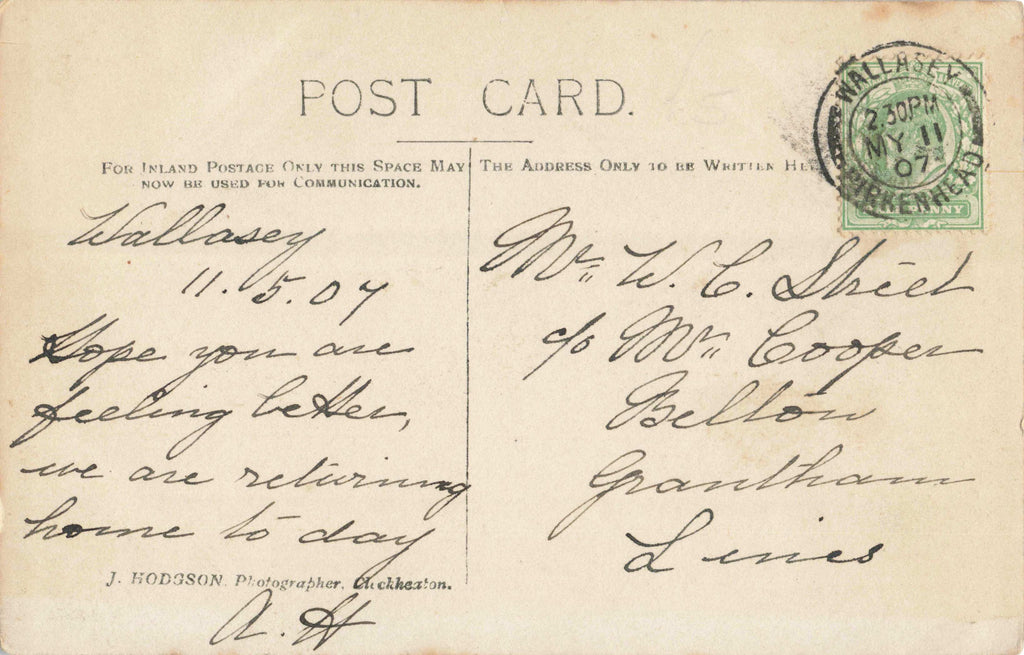 POST CARD.
FOR INLAND POSTAGE ONLY THIS SPACE MAY
NOW BE USED FOR COMMUNICATION.
THE ADDRESS ONLY TO BE WRITTEN HE
WALLASEY
2.30PM
MY 11
07
BIRKENHEAD
Wallasey
11.5.07
Hope you are
feeling better,
we are returning
home to day
A. H
J. HODGSON. Photographer, Cleckheaton.
Mr W. C. Street
c/o Mrs Cooper
Belton
Grantham
Lincs